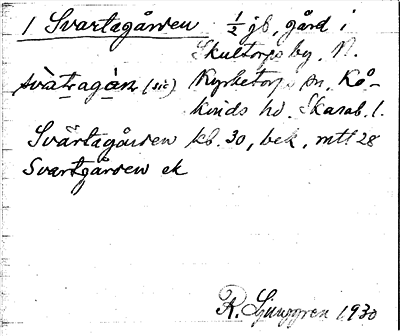 1 Svartagården 1/2 jb, gård i
Skultorps by, N.
svàtragán (sic) Kyrketorps sn, Kå-
kinds hd. Skarab. l.
Svartagården kb. 30, bek, mtl 28
Svartgården ek
R. Ljunggren 1930